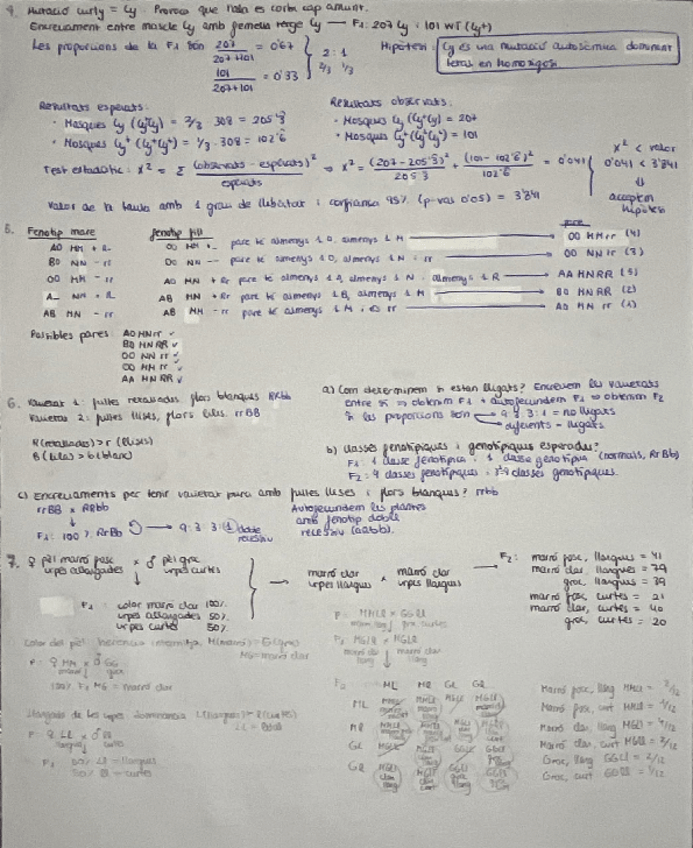 4. Mutació curly = Cy. Provoca que l'ala es corbi cap amunt.
Encreuament entre mascle Cy amb femella verge Cy — F1: 207 Cy : 101 WT (Cy+)
Les proporcions de la F1 són 207/207+101 = 0'67
101/207+101 = 0'33
2:1
2/3 1/3
Hipòtesi: Cy és una mutació autosòmica dominant
letal en homozigosi
Resultats esperats:
· Mosques Cy (Cy+Cy) = 2/3 · 308 = 205'3
· Mosques Cy+ (Cy+Cy+) = 1/3 · 308 = 102'6
Resultats observats:
· Mosques Cy (Cy+Cy) = 207
· Mosques Cy+ (Cy+Cy+) = 101
Test estadístic: X² = Σ (observats - esperats)²/esperats → X² = (207-205'3)²/205'3 + (101-102'6)²/102'6 = 0'041
X² < valor
0'041 < 3'841
⇓
acceptem
hipòtesi
Valor de la taula amb 1 grau de llibertat i confiança 95% (p-val 0'05) = 3'841
5. Fenotip mare
Fenotip fill
pare
AO MM + R-
OO MM
pare té almenys 1 O, almenys 1 M → OO MM rr (4)
BO NN - rr
OO NN --
pare té almenys 1 O, almenys 1 N → OO NN rr (3)
OO MM - rr
AO MN + Rr
pare té almenys 1 A, almenys 1 N i almenys 1 R → AA MN RR (5)
AB MN + Rr
pare té almenys 1 B, almenys 1 M → BO MN RR (2)
AB MN - rr
AB MM - rr
pare té almenys 1 M → AO MN rr (1)
Possibles pares: AO MN rr ✓
BO MN RR ✓
OO NN rr ✓
OO MM rr ✓
AA MN RR ✓
6. Varietat 1: fulles retallades, flors blanques RRbb
Varietat 2: fulles llises, flors liles. rrBB
R (retallades) > r (llises)
B (liles) > b (blanc)
a) Com determinem si estan lligats? Encreuem les varietats
entre si ⇒ obtenim F1 → autofecundem F1 ⇒ obtenim F2
Si les proporcions són → 9:3:3:1 = no lligats
diferents = lligats
b) Classes fenotípiques i genotípiques esperades?
F1: 1 classe fenotípica i 1 classe genotípica (normals, RrBb)
F2: 4 classes fenotípiques i 9 classes genotípiques.
c) Encreuaments per tenir varietat pura amb fulles llises i flors blanques? rrbb
rrBB x RRbb
↓
F1: 100% RrBb → 9:3:3:1 doble
recessiu
Autofecundem les plantes
amb fenotip doble
recessiu (aabb).
7. ♀ pèl marró fosc x ♂ pèl groc
urpes allargades urpes curtes
F1 color marró clar 100%
urpes allargades 50%
urpes curtes 50%
→ marró clar x marró clar
urpes llargues urpes llargues
→ F2: marró fosc, llargues = 41
marró clar, llargues = 79
groc, llargues = 39
marró fosc, curtes = 21
marró clar, curtes = 40
groc, curtes = 20
Color del pèl: herència intermitja M(marró) = G(groc)
MG = marró clar
P: ♀ MM x ♂ GG
marró groc
100% F1 MG = marró clar
Llargada de les urpes dominància L(llargues) > l(curtes)
P: ♀ Ll x ♂ ll
F1 50% Ll = llargues
50% ll = curtes
P: MMLl x GGll
F1 MGLl x MGLl
F2 ML Ml GL Gl
ML
Ml
GL
Gl
Marró fosc, llarg MMLl = 2/12
Marró fosc, curt MMll = 1/12
Marró clar, llarg MGLl = 4/12
Marró clar, curt MGll = 2/12
Groc, llarg GGLl = 2/12
Groc, curt GGll = 1/12